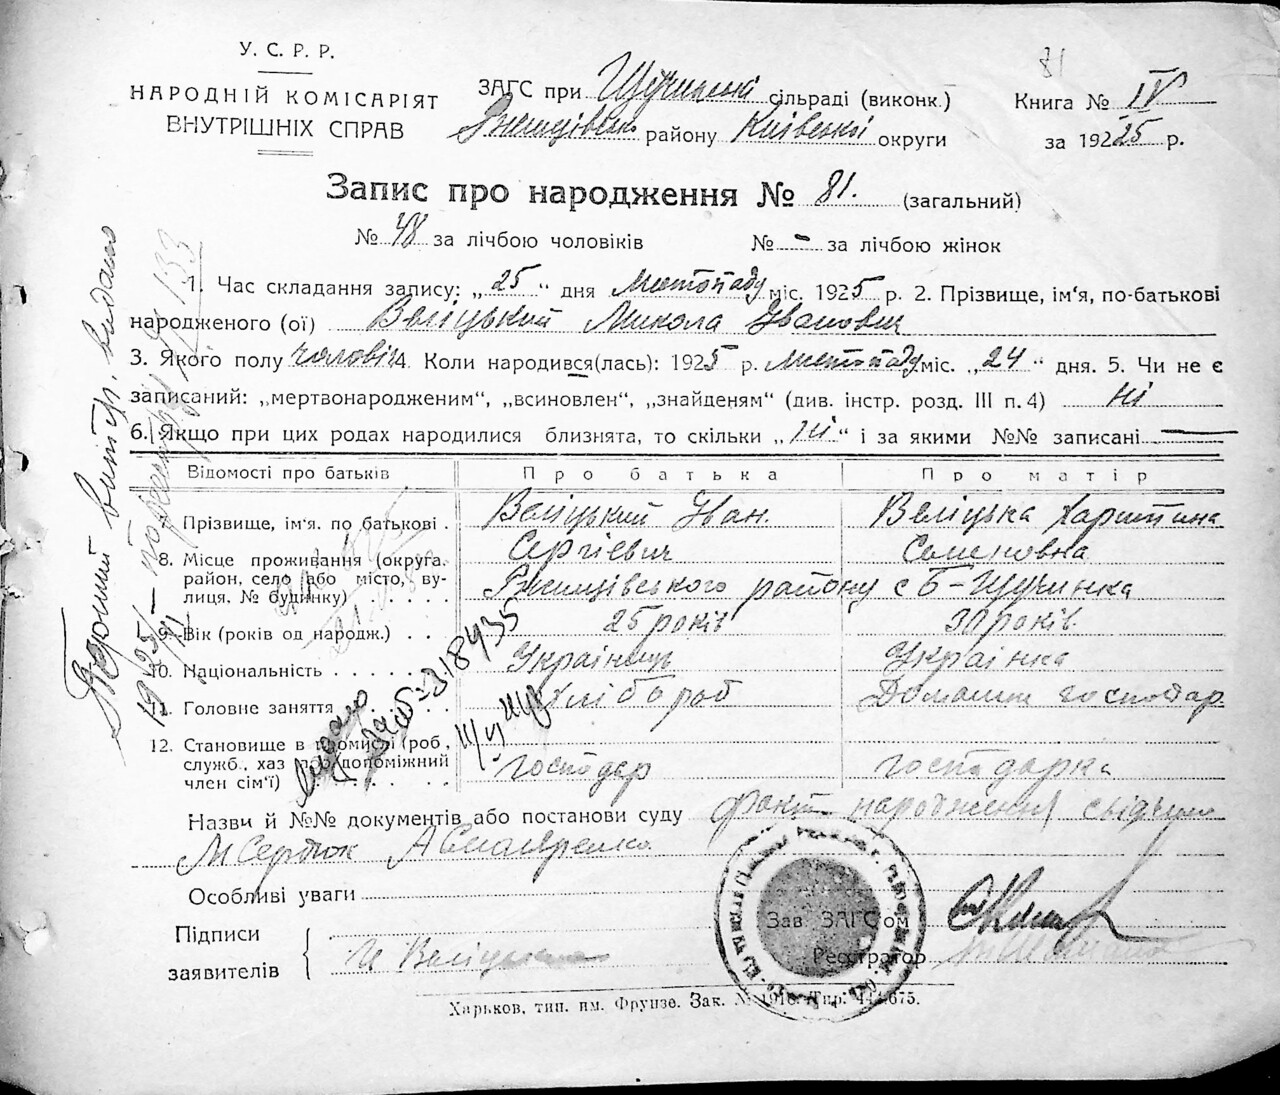 У. С. Р. Р.
НАРОДНІЙ КОМІСАРІЯТ
ВНУТРІШНІХ СПРАВ
81
ЗАГС при Щучинській сільраді (виконк.)
Ржищівськ району Київської округи
Книга № IV
за 192 25 р.
Запис про народження № 81. (загальний)
№ 48 за лічбою чоловіків № – за лічбою жінок
1. Час складання запису: „ 25 “ дня Листопаду міс. 1925 р. 2. Прізвище, ім'я, по-батькові
народженого (ої) Веліцький Микола Іванович
3. Якого полу чоловіч 4. Коли народився(лась): 1925 р. Листопаду міс. „ 24 “ дня. 5. Чи не є
записаний: „мертвонародженим“, „всиновлен“, „знайденям“ (див. інстр. розд. III п. 4) ні
6. Якщо при цих родах народилися близнята, то скільки „ ні “ і за якими №№ записані —
Відомості про батьків Про батька Про матір
7. Прізвище, ім'я. по батькові . Веліцький Іван. Веліцька Харитина
Сергієвич Семеновна
8. Місце проживання (округа,
район, село або місто, ву-
лиця. № будинку) Ржищівського району с Б-Щучинка
9. Вік (років од народж.) 25 років 30 років.
10. Національність Українець Українка
11. Головне заняття Хлібороб Домашн господар.
12. Становище в промислі (роб.,
служб., хаз. про допоміжний
член сім'ї) господар господарка
Назви й №№ документів або постанови суду Факт народження свідчили
М Сердюк А
Особливі уваги
Підписи
заявителів
И Веліцький
Зав. ЗАГС'ом
Реєстратор
Харьков, тип. им. Фрунзе. Зак. № 1916. Тир. 442.675.
видано
133
Видано
318435